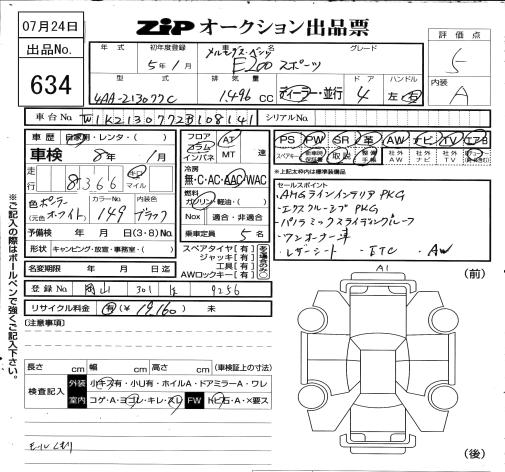 07月24日
出品No.
634
ZIP オークション出品票
評価点
5
内装
A
年式 初年度登録 車名 グレード
5年 1月 メルセデス・ベンツ E200 スポーツ
型式 排気量 ドア ハンドル
4AA-213077C 1496cc ディーラー・並行 4 左・右
車台No W1K2130772B108141 シリアルNo.
車歴 自家用・レンタ・( )
車検 8年 1月
走行 8366 キロ マイル
色 ポーラーホワイト (元色) カラーNo. 149 内装色 ブラック
予備検 年 月 日(3・8)No.
形状 キャンピング・放宣・事務室・( )
名変期限 年 月 日迄
登録No. 岡山 301 9256
リサイクル料金 有(¥19,160) 未
フロア コラム インパネ AT MT 速
冷房 無・C・AC・AAC・WAC
燃料 ガソリン・軽油・( )
Nox 適合・非適合
乗車定員 5名
スペアタイヤ【有】
ジャッキ【有】
工具【有】
AWロックキー【有】
PS PW SR 革 AW ナビ TV エアB
スペアキー 取説 社外AW 社外ナビ 社外TV
※上記太枠内は標準装備品
セールスポイント
・AMGラインインテリア PKG
・エクスクルーシブ PKG
・パノラミックスライディングルーフ
・ワンオーナー車
・レザーシート ・ETC ・AW
[注意事項]
長さ cm 幅 cm 高さ cm (車検証上の寸法)
検査記入 外装 小キズ有・小U有・ホイルA・ドアミラーA・ワレ
室内 コゲ・A・ヨゴレ・キレ・スレ FW トビ石・A・×要ス
モールくもり
A1
(前)
(後)
※ご記入の際はボールペンで強くご記入下さい。